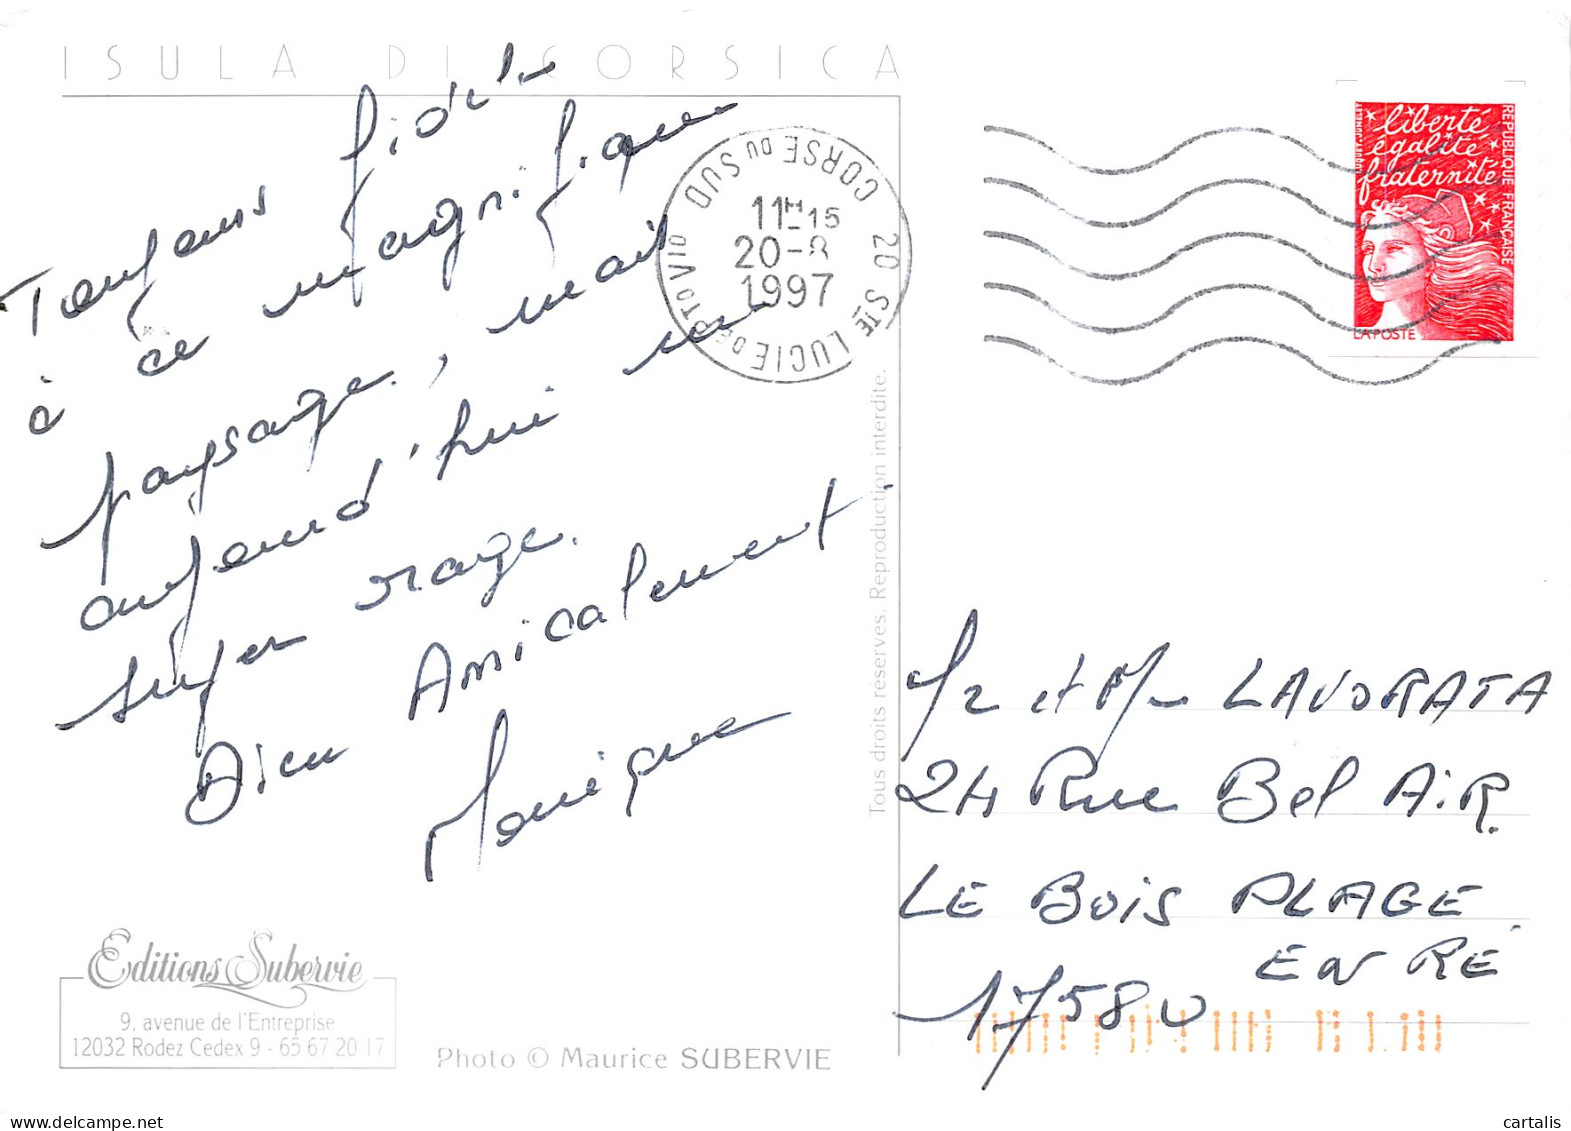 ISULA DI CORSICA
Toujours fidèle
à ce magnifique
paysage, mais
aujourd'hui un
super orage.
Bien Amicalement
Monique
Editions Subervie
9, avenue de l'Entreprise
12032 Rodez Cedex 9 - 65 67 20 17
Photo © Maurice SUBERVIE
Tous droits réservés. Reproduction interdite.
20 STE LUCIE DE PTO VIO
CORSE DU SUD
11H15
20-8
1997
liberté
égalité
fraternité
REPUBLIQUE FRANÇAISE
LA POSTE
Mr et Mme LAVORATA
24 Rue Bel AiR
LE BOIS PLAGE
EN RÉ
17580
cartalis.com